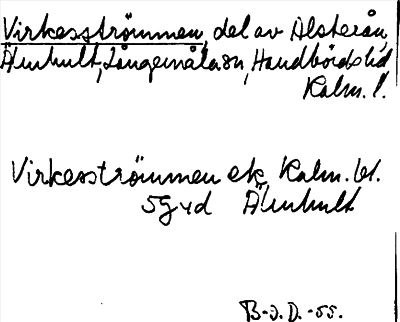 Virkesströmmen, del av Alsterån,
Älmhult, Långemåla sn, Handbörds hd
Kalm. l.
Virkesströmmen ek. Kalm. bl.
5g vd Älmhult
B-J.D.-55.